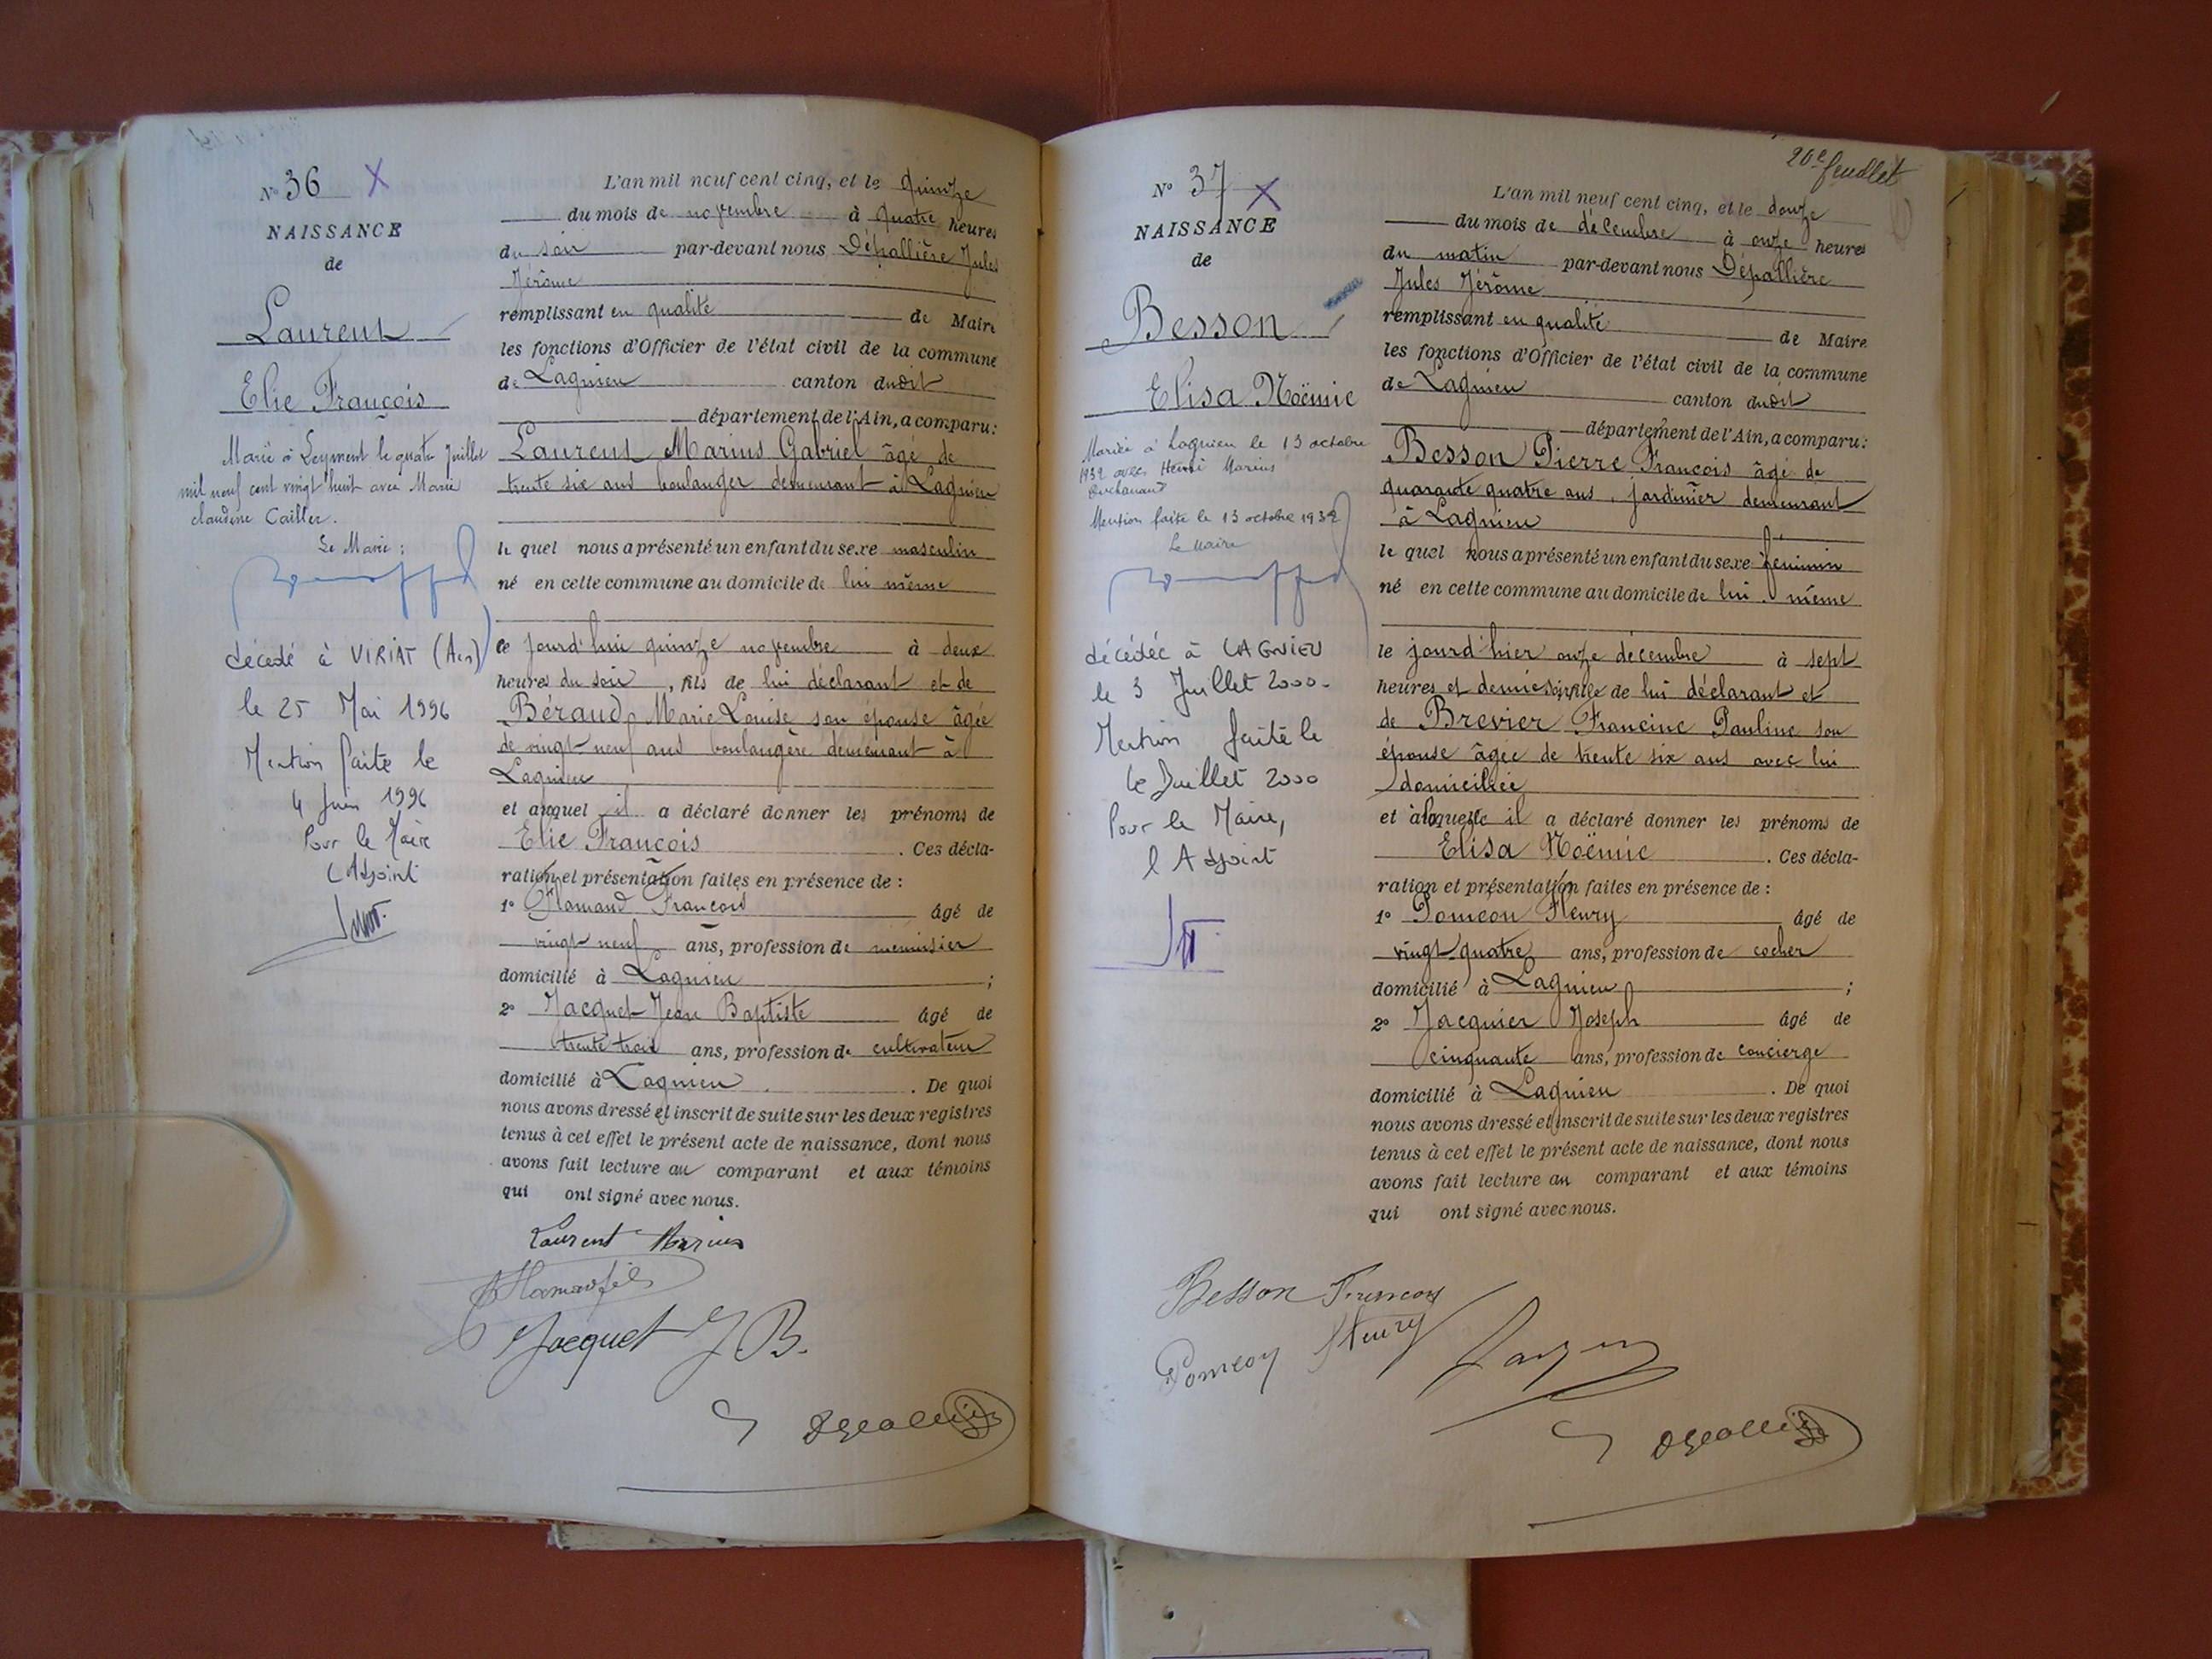 N° 36 X
NAISSANCE
de
Laurent
Elie François
Marié à Leyment le quatre Juillet
mil neuf cent vingt huit avec Marie
claudine Caillet.
Le Maire :
décédé à VIRIAT (Ain)
le 25 Mai 1996
Mention faite le
4 Juin 1996
Pour le Maire
L'Adjoint
L'an mil neuf cent cinq, et le quinze
du mois de novembre à quatre heures
du soir par-devant nous Dépallière Jules
Jérôme
remplissant en qualité de Maire
les fonctions d'Officier de l'état civil de la commune
de Lagnieu canton dudit
département de l'Ain, a comparu :
Laurent Marius Gabriel âgé de
trente six ans boulanger demeurant à Lagnieu
lequel nous a présenté un enfant du sexe masculin
né en cette commune au domicile de lui même
ce jourd'hui quinze novembre à deux
heures du soir, fils de lui déclarant et de
Béraud Marie Louise son épouse âgée
de vingt-neuf ans boulangère demeurant à
Lagnieu
et auquel il a déclaré donner les prénoms de
Elie François . Ces décla-
ration et présentation faites en présence de :
1° Flamand François âgé de
vingt neuf ans, profession de menuisier
domicilié à Lagnieu ;
2° Jacquet Jean Baptiste âgé de
trente trois ans, profession de cultivateur
domicilié à Lagnieu . De quoi
nous avons dressé et inscrit de suite sur les deux registres
tenus à cet effet le présent acte de naissance, dont nous
avons fait lecture au comparant et aux témoins
qui ont signé avec nous.
Laurent Marius
Flamand fils
Jacquet J B.
20e feuillet
N° 37 X
NAISSANCE
de
Besson
Elisa Noëmie
Mariée à Lagnieu le 13 octobre
1932 avec Henri Marius
Mention faite le 13 octobre 1932
Le Maire
décédée à LAGNIEU
le 3 Juillet 2000.
Mention faite le
Juillet 2000
Pour le Maire,
l'Adjoint
L'an mil neuf cent cinq, et le douze
du mois de décembre à onze heures
du matin par-devant nous Dépallière
Jules Jérôme
remplissant en qualité de Maire
les fonctions d'Officier de l'état civil de la commune
de Lagnieu canton dudit
département de l'Ain, a comparu :
Besson Pierre François âgé de
quarante quatre ans, jardinier demeurant
à Lagnieu
lequel nous a présenté un enfant du sexe féminin
né en cette commune au domicile de lui même
le jourd'hier onze décembre à sept
heures et demie soir, fille de lui déclarant et
de Brevier Francine Pauline son
épouse âgée de trente six ans avec lui
domiciliée
et à laquelle il a déclaré donner les prénoms de
Elisa Noëmie . Ces décla-
ration et présentation faites en présence de :
1° Pomeon Fleury âgé de
vingt quatre ans, profession de cocher
domicilié à Lagnieu ;
2° Jacquier Joseph âgé de
cinquante ans, profession de concierge
domicilié à Lagnieu . De quoi
nous avons dressé et inscrit de suite sur les deux registres
tenus à cet effet le présent acte de naissance, dont nous
avons fait lecture au comparant et aux témoins
qui ont signé avec nous.
Besson François
Pomeon Fleury